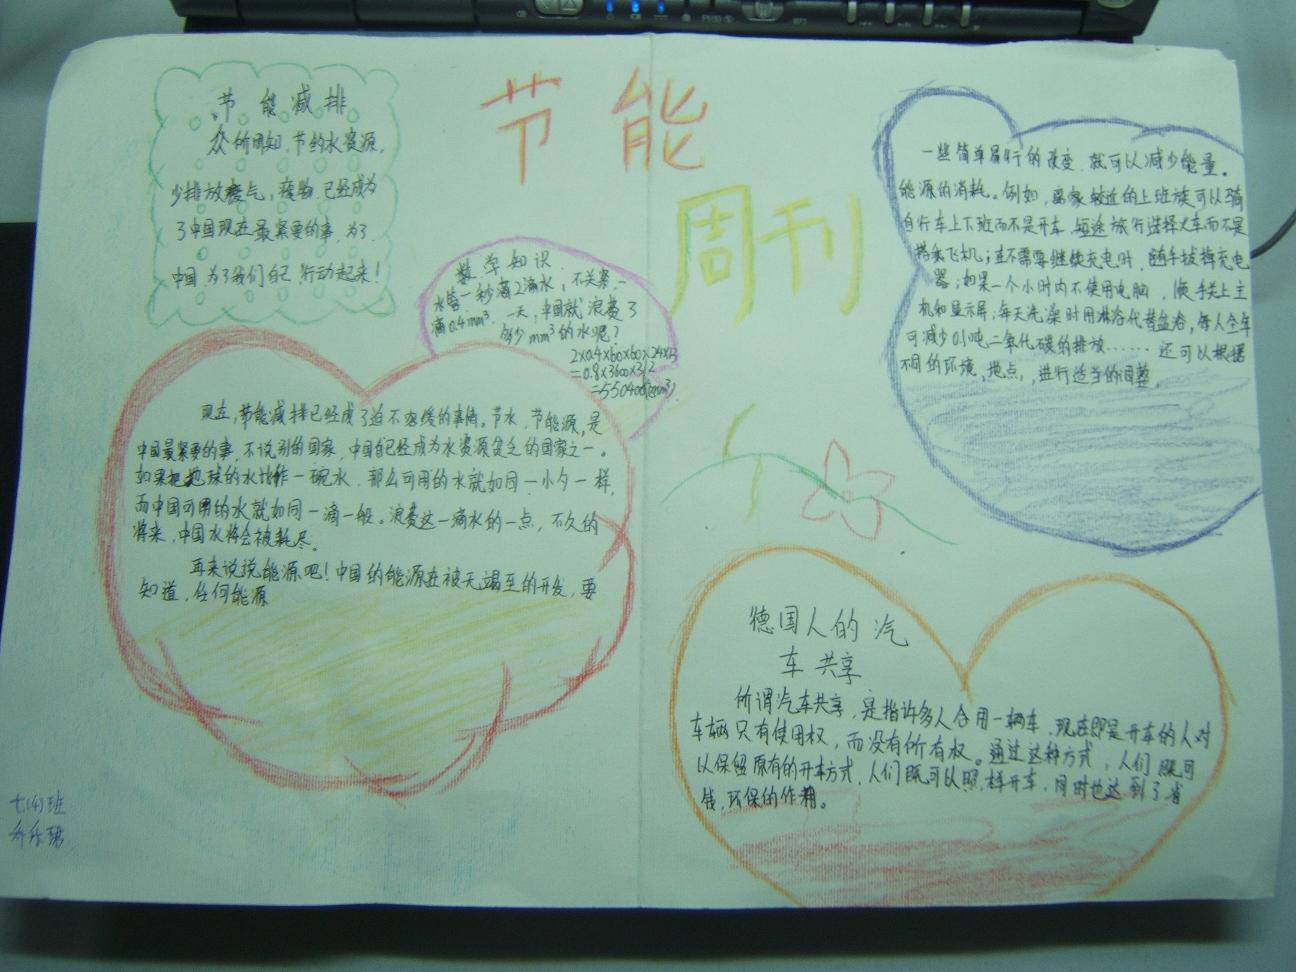 节能
周刊
节能减排
众所周知,节约水资源,
少排放废气,废物,已经成为
了中国现在最紧要的事,为了
中国 为了我们自己 行动起来!
数学知识
水管一秒滴2滴水,不关紧,一
滴0.4mm³,一天,中国就浪费了
多少mm³的水呢?
2×0.4×60×60×24×13
=0.8×3600×312
现在,节能减排已经成了迫不容缓的事情。节水,节能源,是
中国最紧要的事,不说别的国家,中国自己经成为水资源贫乏的国家之一。
如果把地球的水比作一碗水,那么可用的水就如同一小勺一样,
而中国可用的水就如同一滴一般。浪费这一滴水的一点,不久的
将来,中国水将会被耗尽。
再来说说能源吧!中国的能源在被无竭至的开发,要
知道,任何能源
一些简单易行的改变,就可以减少能量。
能源的消耗。例如,离家较近的上班族可以骑
自行车上下班而不是开车,短途旅行选择火车而不是
搭乘飞机;在不需要继续充电时,随手拔掉充电
器;如果一个小时内不使用电脑,便手关上主
机和显示屏;每天洗澡时用淋浴代替盆浴,每人全年
可减少0.1吨二氧化碳的排放……还可以根据
不同的环境,地点,,进行适当的调整。
德国人的汽
车共享
所谓汽车共享,是指许多人合用一辆车,现在即是开车的人对
车辆只有使用权,而没有所有权。通过这种方式,人们既可
以保留原有的开车方式,人们既可以照样开车,同时也达到了省
钱,环保的作用。
七(4)班